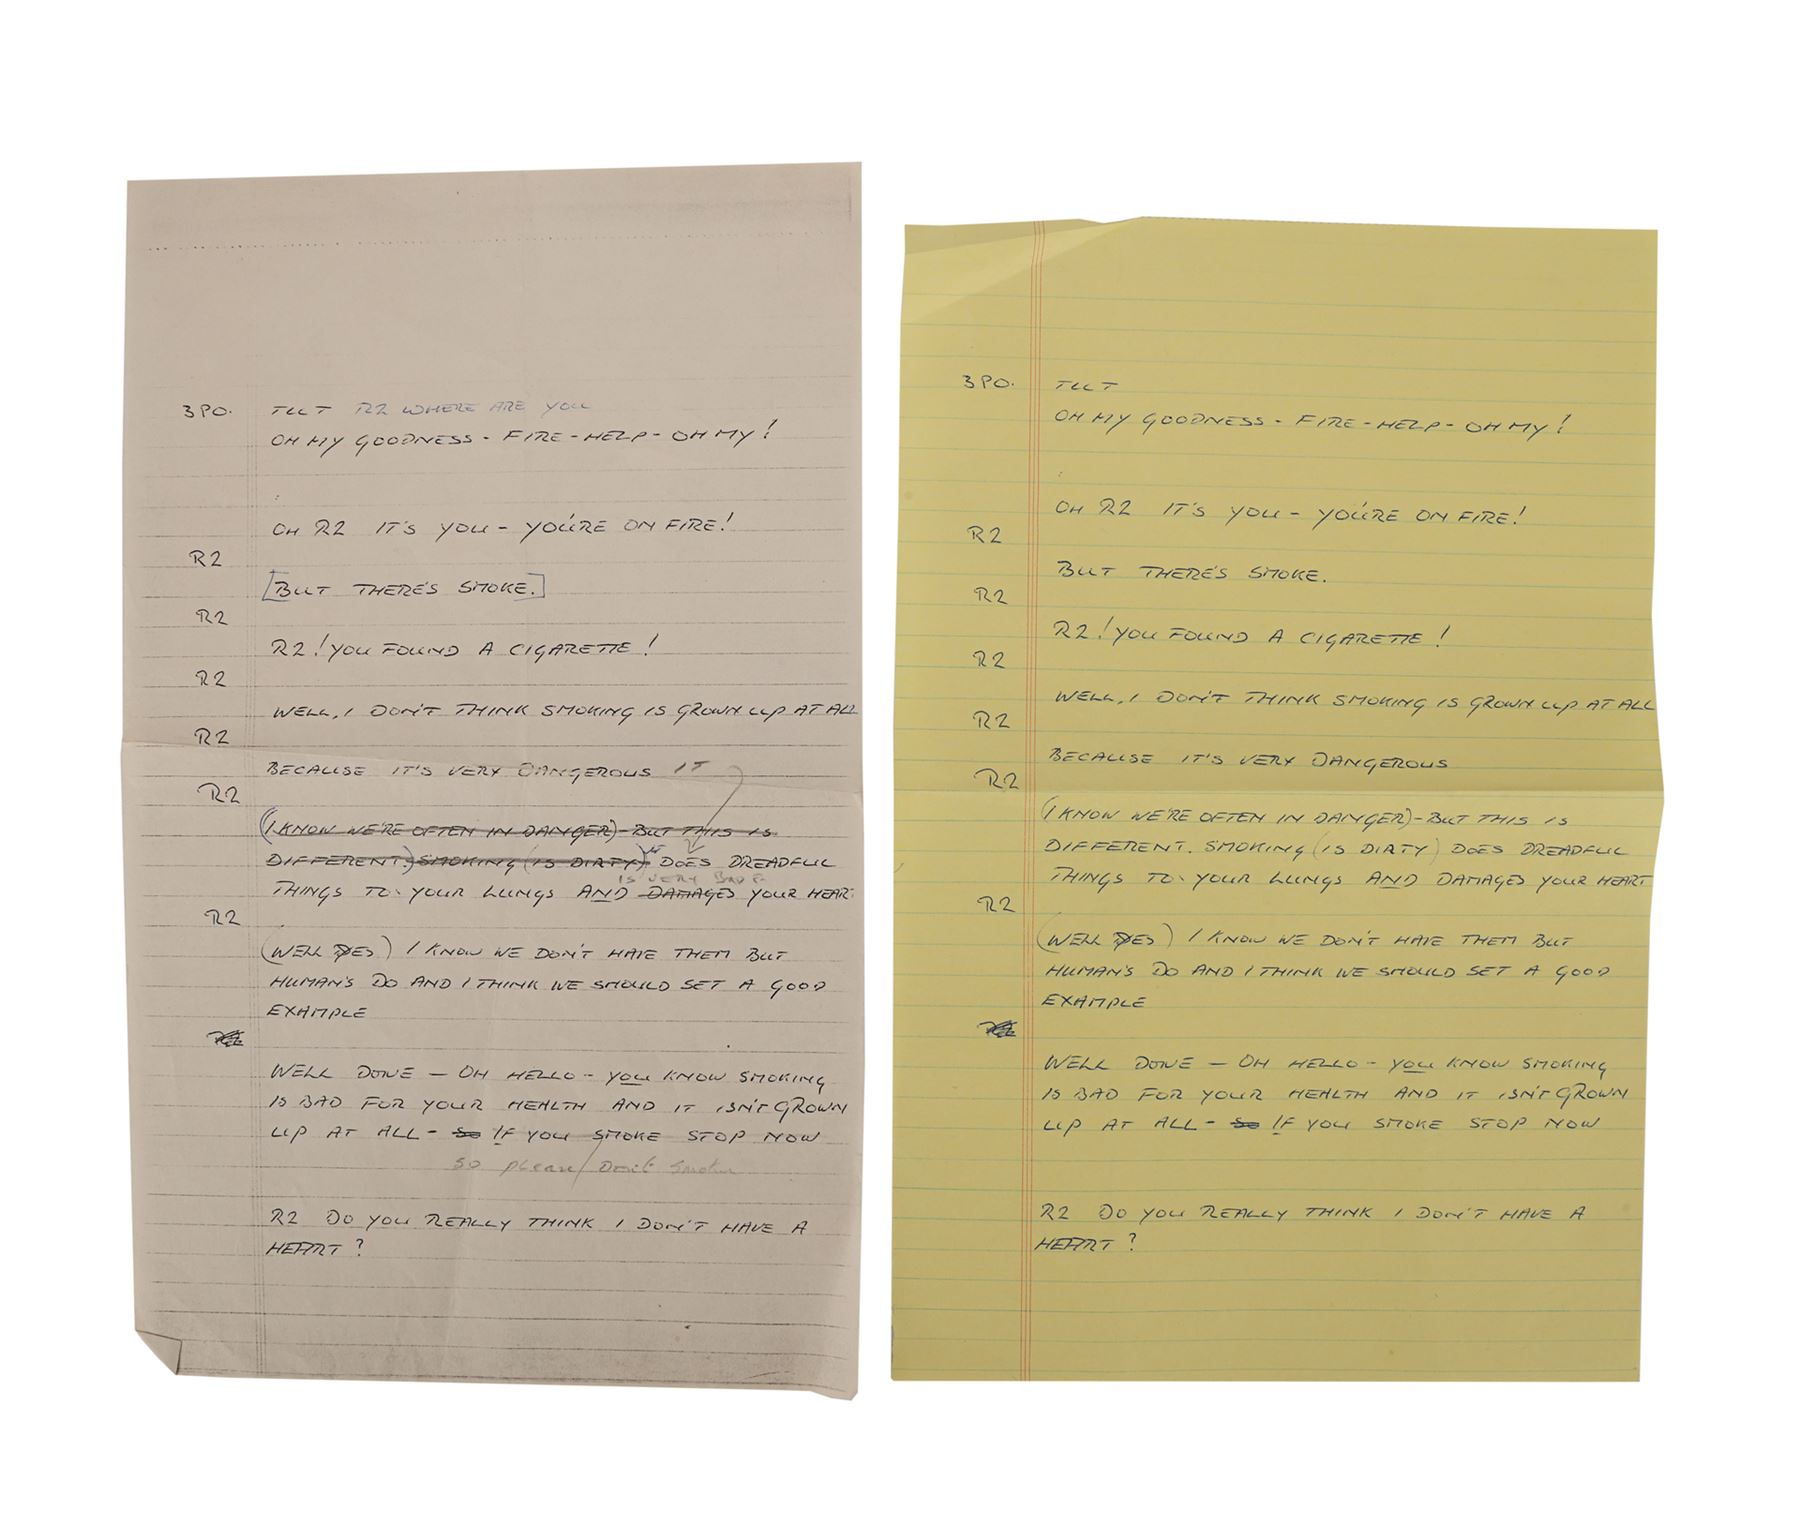 3PO. TUT R2 WHERE ARE YOU
OH MY GOODNESS - FIRE - HELP - OH MY!
OH R2 IT'S YOU - YOU'RE ON FIRE!
R2
[BUT THERE'S SMOKE.]
R2
R2! YOU FOUND A CIGARETTE!
R2
WELL, I DON'T THINK SMOKING IS GROWN UP AT ALL
R2
BECAUSE IT'S VERY DANGEROUS IT
R2
(I KNOW WE'RE OFTEN IN DANGER) - BUT THIS IS
DIFFERENT. SMOKING (IS DIRTY) DOES DREADFUL
IS VERY BAD
THINGS TO YOUR LUNGS AND DAMAGES YOUR HEART
R2
(WELL YES) I KNOW WE DON'T HAVE THEM BUT
HUMAN'S DO AND I THINK WE SHOULD SET A GOOD
EXAMPLE
WELL DONE - OH HELLO - YOU KNOW SMOKING
IS BAD FOR YOUR HEALTH AND IT ISN'T GROWN
UP AT ALL - So IF YOU SMOKE STOP NOW
So please / Don't smoke
R2 DO YOU REALLY THINK I DON'T HAVE A
HEART?
3PO. TUT
OH MY GOODNESS - FIRE - HELP - OH MY!
OH R2 IT'S YOU - YOU'RE ON FIRE!
R2
BUT THERE'S SMOKE.
R2
R2! YOU FOUND A CIGARETTE!
R2
WELL, I DON'T THINK SMOKING IS GROWN UP AT ALL
R2
BECAUSE IT'S VERY DANGEROUS
R2
(I KNOW WE'RE OFTEN IN DANGER) - BUT THIS IS
DIFFERENT. SMOKING (IS DIRTY) DOES DREADFUL
THINGS TO YOUR LUNGS AND DAMAGES YOUR HEART
R2
(WELL YES) I KNOW WE DON'T HAVE THEM BUT
HUMAN'S DO AND I THINK WE SHOULD SET A GOOD
EXAMPLE
WELL DONE - OH HELLO - YOU KNOW SMOKING
IS BAD FOR YOUR HEALTH AND IT ISN'T GROWN
UP AT ALL - So IF YOU SMOKE STOP NOW
R2 DO YOU REALLY THINK I DON'T HAVE A
HEART?